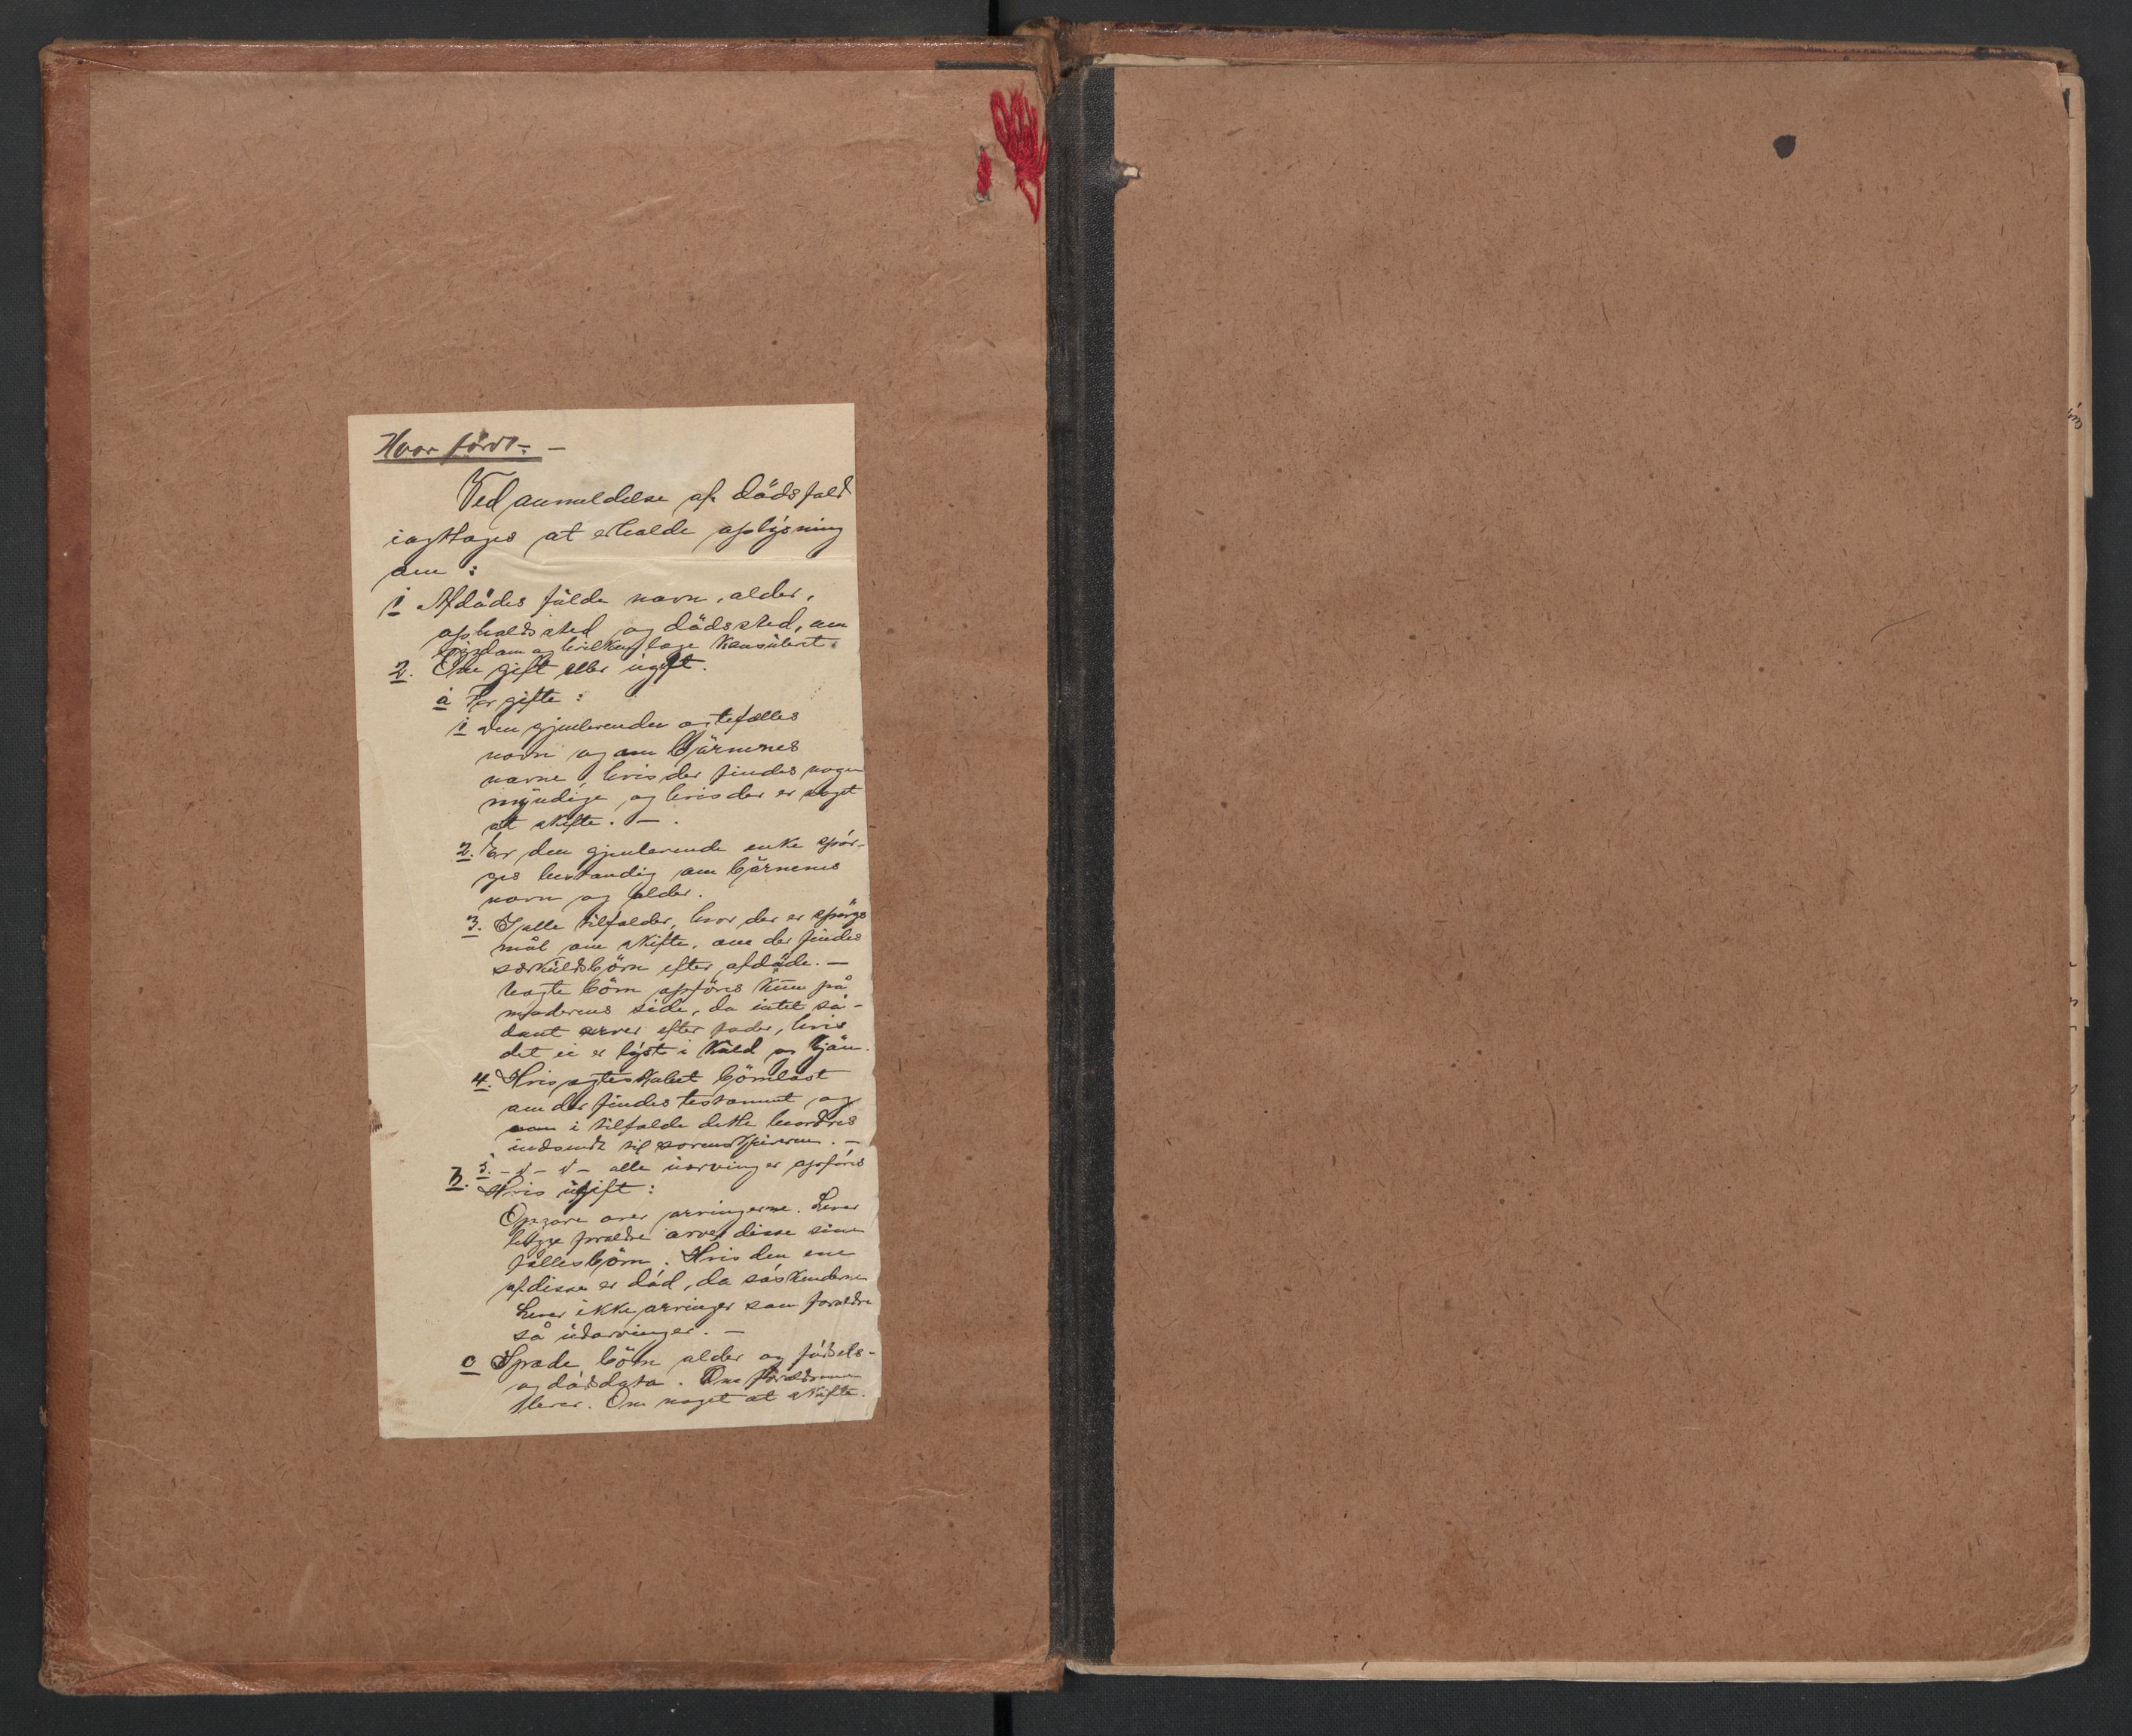 Hvor född. —
Ved anmeldelse af dödsfald
iagttages at erholde oplysning
om :
1 Afdödes fulde navn, alder,
opholdssted og dödssted, om
sygdom og hvilken læge konsulert.
2. Om gift eller ugift.
a For gifte :
1 Den gjenlevendes ægtefælles
navn og om börnenes
navne, hvis der findes nogen
myndige, og hvis der er noget
at skifte. — .
2. Er den gjenlevende enke spör-
ges bestandig om börnenes
navn og alder.
3. I alle tilfælder, hvor der er spörgs
mål om skifte, om der findes
særkuldsbörn efter afdöde. —
Uægte börn opföres kun på
moderens side, da intet så-
dant arver efter fader, hvis
det ei er lyst i kuld og kjön.
4. Hvis ægteskabet börnlöst
om der findes testament, og
i tilfælde dette
indsendt til sorenskriveren. —
5. - " - " - alle udarvinger opföres
B. Hvis ugift :
Opgave over arvingerne. Lever
begge forældre arver disse sine
fællesbörn. Hvis den ene
af disse er död, da söskenderne
Lever ikke arvinger som forældre
så udarvinger. —
c Spæde börn alder og födsels-
og dödsdata. Om forældrene
lever. Om noget at skifte.